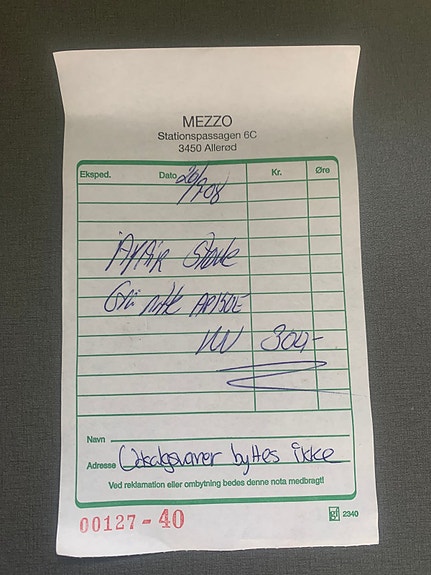 MEZZO
Stationspassagen 6C
3450 Allerød
Eksped. Dato 26/ 08 Kr. Øre
300,-
Navn
Adresse Udsalgsvarer byttes ikke
Ved reklamation eller ombytning bedes denne nota medbragt!
00127 - 40
gj 2340